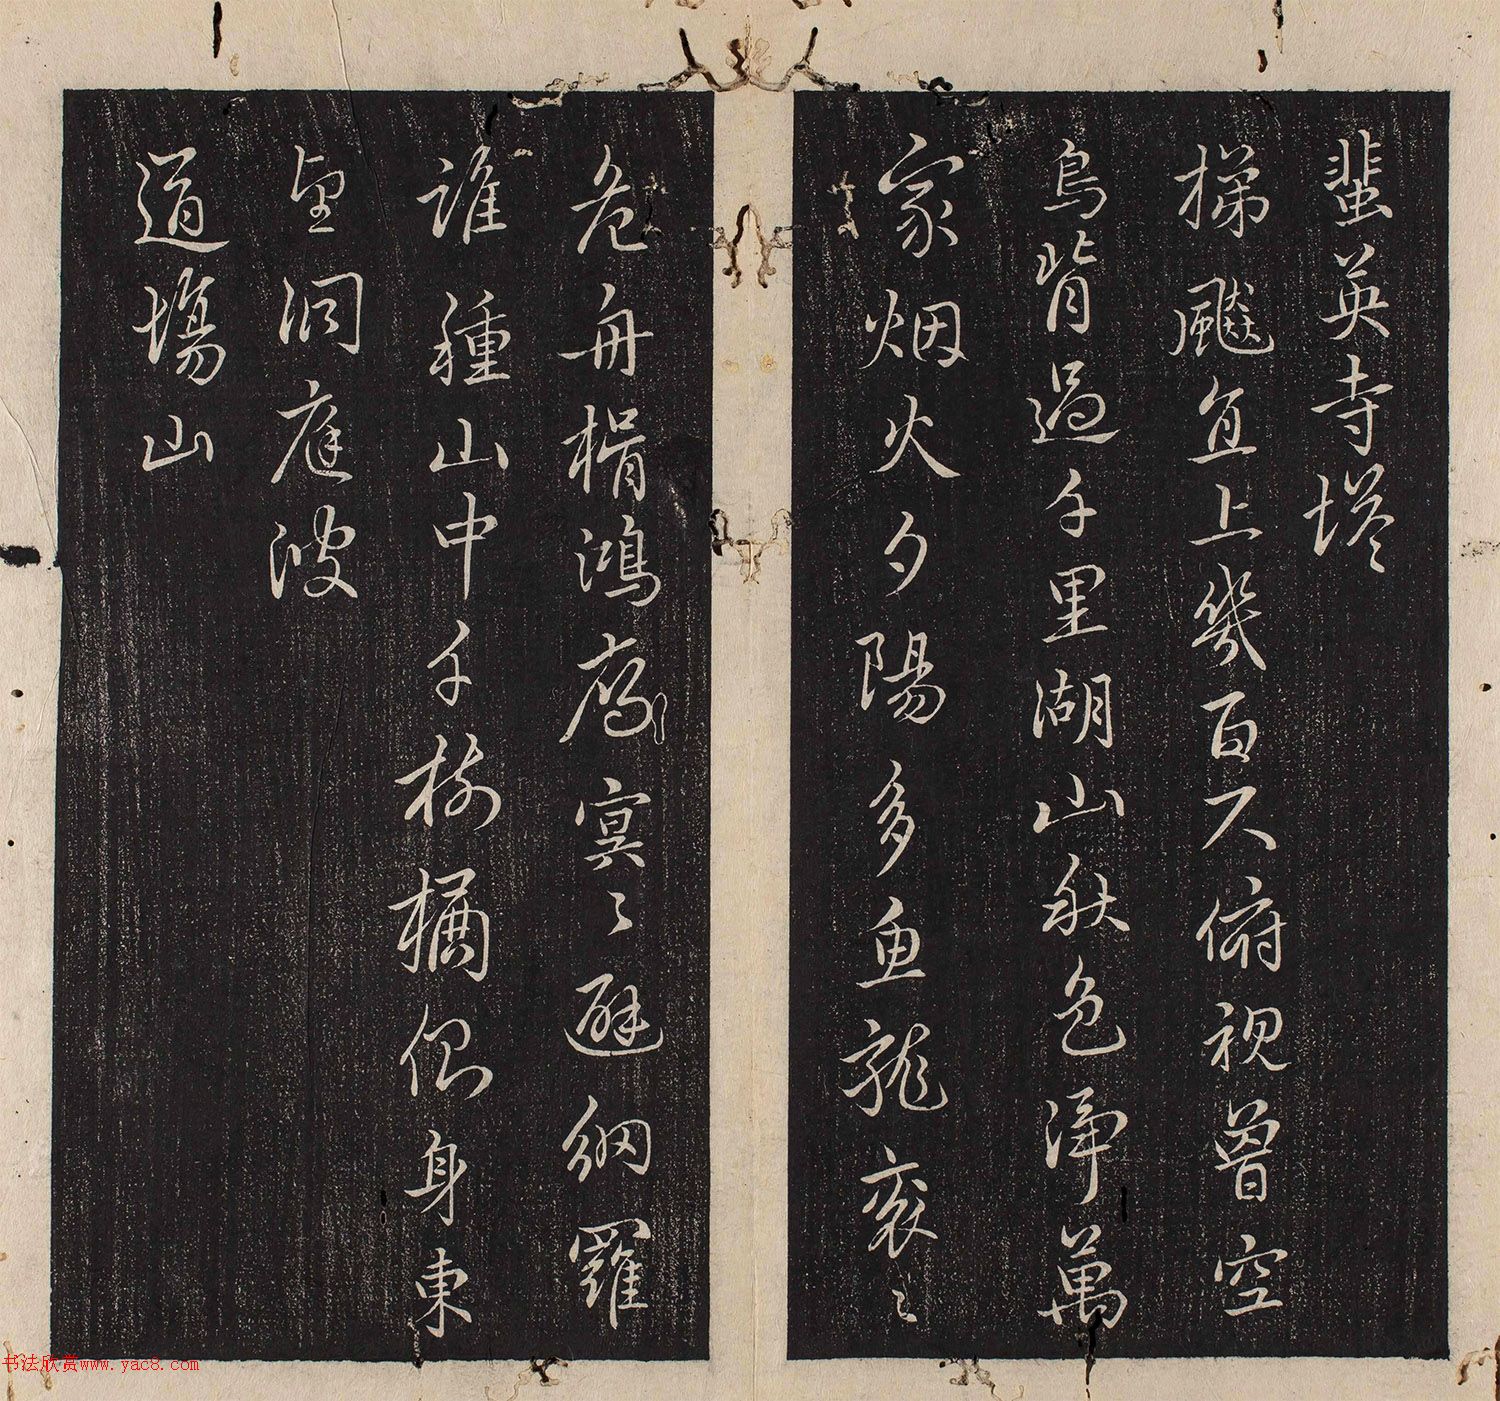 蜚英寺塔
梯飈直上幾百尺俯視曾空
鳥背過千里湖山秋色淨萬
家烟火夕陽多魚龍袞〻
危舟楫鴻鴈冥〻避網羅
誰種山中千樹橘側身東
望洞庭波
道場山
书法欣赏www.yac8.com